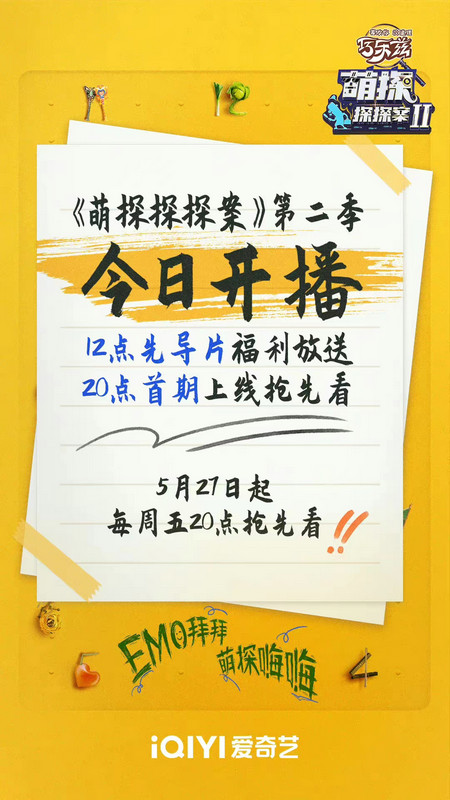 巧乐兹
萌探
探探案II
《萌探探探案》第二季
今日开播
12点先导片福利放送
20点首期上线抢先看
5月27日起
每周五20点抢先看!!
EMO拜拜
萌探嗨嗨
iQIYI 爱奇艺